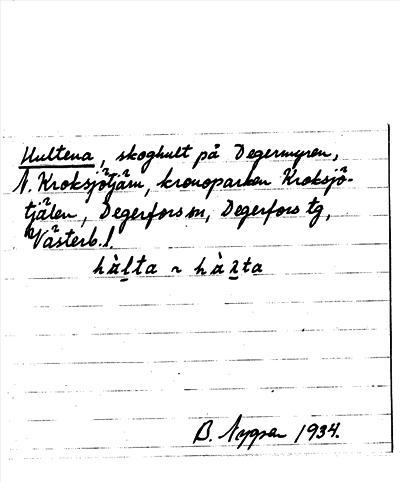 Hultena, skoghult på Degermyren,
N. Kroksjötjärn, kronoparken Kroksjö-
tjälen, Degerfors sn, Degerfors tg,
Västerb. l.
hàlta ~ hàlta
B. Nygren 1934.